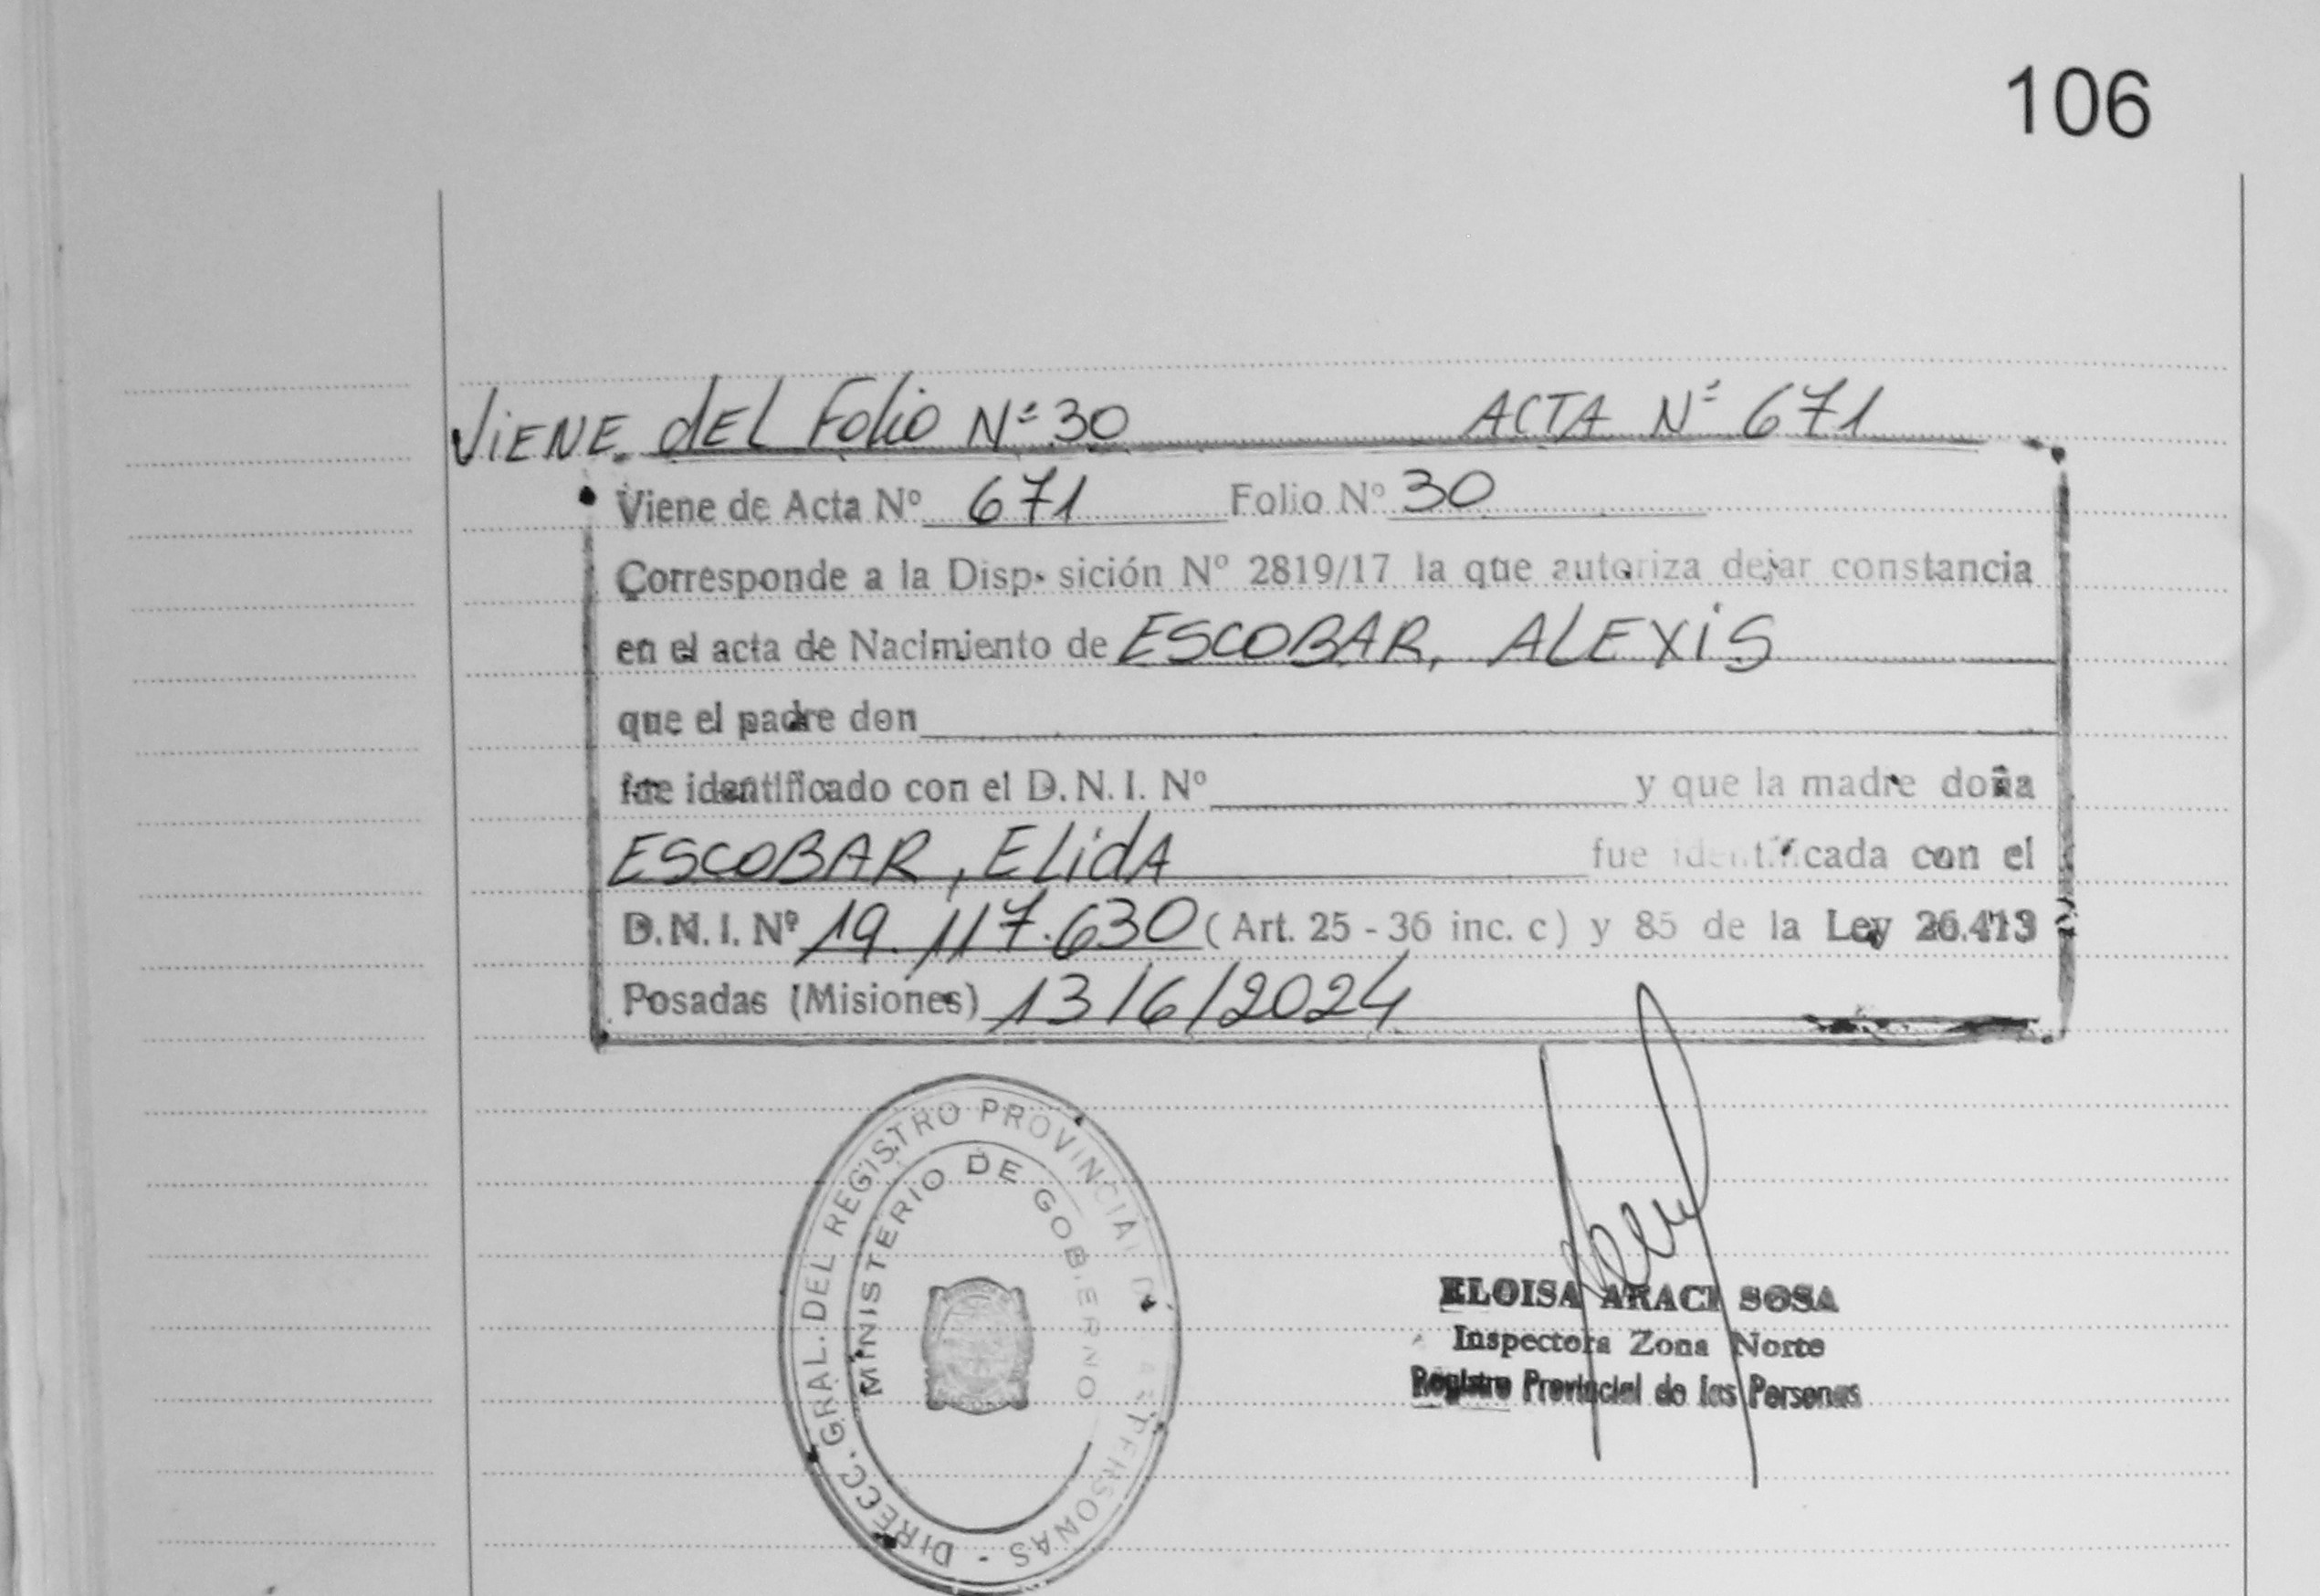 106
VIENE dEL Folio Nº 30 ACTA Nº 671
Viene de Acta Nº 671 Folio Nº 30
Corresponde a la Disp sición Nº 2819/17 la que autoriza dejar constancia
en el acta de Nacimiento de ESCOBAR, ALEXiS
que el padre don
fue identificado con el D.N.I. Nº y que la madre doña
ESCOBAR, ELidA fue identificada con el
D.N.I. Nº 19.117.630 (Art. 25 - 36 inc. c) y 85 de la Ley 26.413
Posadas (Misiones) 13/6/2024
DIRECC. GRAL. DEL REGISTRO PROVINCIAL DE LAS PERSONAS -
MINISTERIO DE GOBIERNO
ELOISA ARACI SOSA
Inspectora Zona Norte
Registro Provincial de las Personas